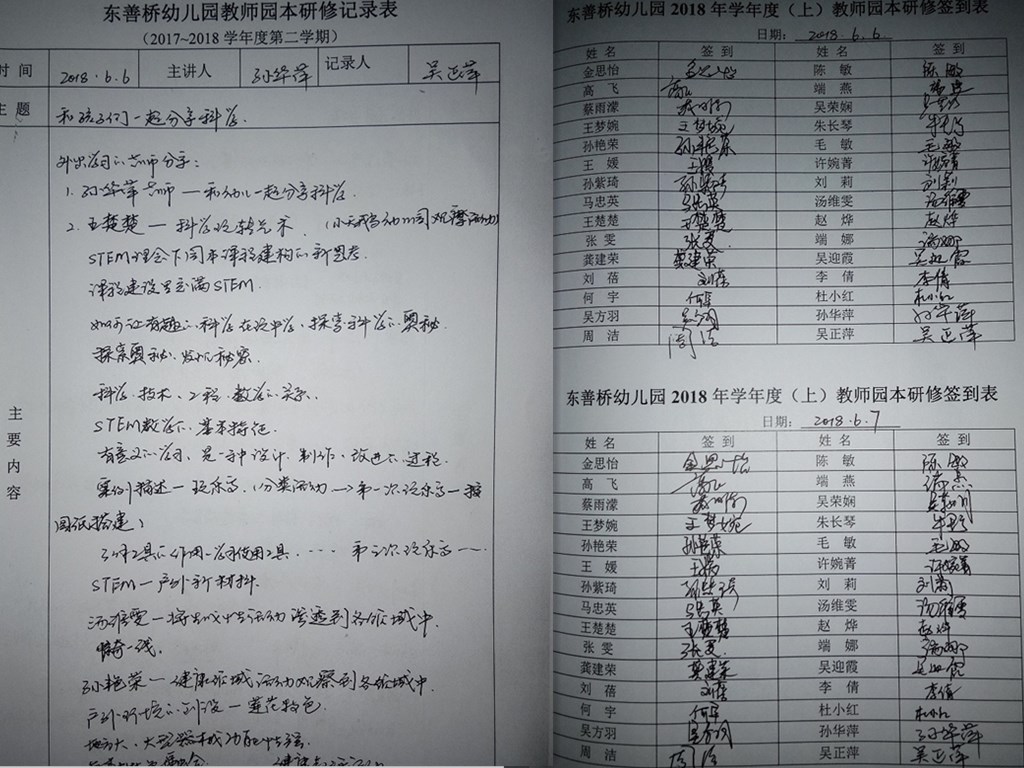 东善桥幼儿园教师园本研修记录表
（2017~2018 学年度第二学期）
时 间 2018.6.6 主讲人 孙华萍 记录人 吴正萍
主 题 和孩子们一起分享科学.
主要内容
外出学习的老师分享：
1. 孙华萍老师 — 和幼儿一起分享科学.
2. 王楚楚 — 科学没
STEM理念下园本课程建构的新思考.
课程建设里充满STEM.
如何让有趣的科学在沙中学, 探寻科学的奥秘.
探索奥秘, 发现秘密.
科学. 技术. 工程. 数学的关系.
STEM教学的基本特征.
有意义的学习, 是一种设计. 制作. 改进的过程.
案例描述 — 玩乐高. (分类活动 → 第一次玩乐高 —
图纸搭建)
工具的作用 — 学习使用工具. …… 第三次玩乐高 ——
STEM — 户外新材料.
汤维雯 — 活动渗透到各领域中.
孙艳荣 — 健康领域活动观察到各领域中.
户外环境的创设 — 莲花特色.
地方大, 大型器械功能性强.
东善桥幼儿园 2018 年学年度（上）教师园本研修签到表
日期： 2018.6.6
姓 名 签 到 姓 名 签 到
金思怡 金思怡 陈 敏 陈敏
高 飞 高飞 端 燕 端燕
蔡雨濛 蔡雨濛 吴荣娴
王梦婉 王梦婉 朱长琴 朱长琴
孙艳荣 孙艳荣 毛 敏 毛敏
王 媛 王媛 许婉菁 许婉菁
孙紫琦 孙紫琦 刘 莉 刘莉
马忠英 马忠英 汤维雯 汤维雯
王楚楚 王楚楚 赵 烨 赵烨
张 雯 张雯 端 娜 端娜
龚建荣 龚建荣 吴迎霞 吴迎霞
刘 蓓 刘蓓 李 倩 李倩
何 宇 何宇 杜小红 杜小红
吴方羽 吴方羽 孙华萍 孙华萍
周 洁 周洁 吴正萍 吴正萍
东善桥幼儿园 2018 年学年度（上）教师园本研修签到表
日期： 2018.6.7
姓 名 签 到 姓 名 签 到
金思怡 金思怡 陈 敏 陈敏
高 飞 高飞 端 燕 端燕
蔡雨濛 蔡雨濛 吴荣娴 吴荣娴
王梦婉 王梦婉 朱长琴 朱长琴
孙艳荣 孙艳荣 毛 敏 毛敏
王 媛 王媛 许婉菁 许婉菁
孙紫琦 孙紫琦 刘 莉 刘莉
马忠英 马忠英 汤维雯 汤维雯
王楚楚 王楚楚 赵 烨 赵烨
张 雯 张雯 端 娜 端娜
龚建荣 龚建荣 吴迎霞 吴迎霞
刘 蓓 刘蓓 李 倩 李倩
何 宇 何宇 杜小红 杜小红
吴方羽 吴方羽 孙华萍 孙华萍
周 洁 周洁 吴正萍 吴正萍